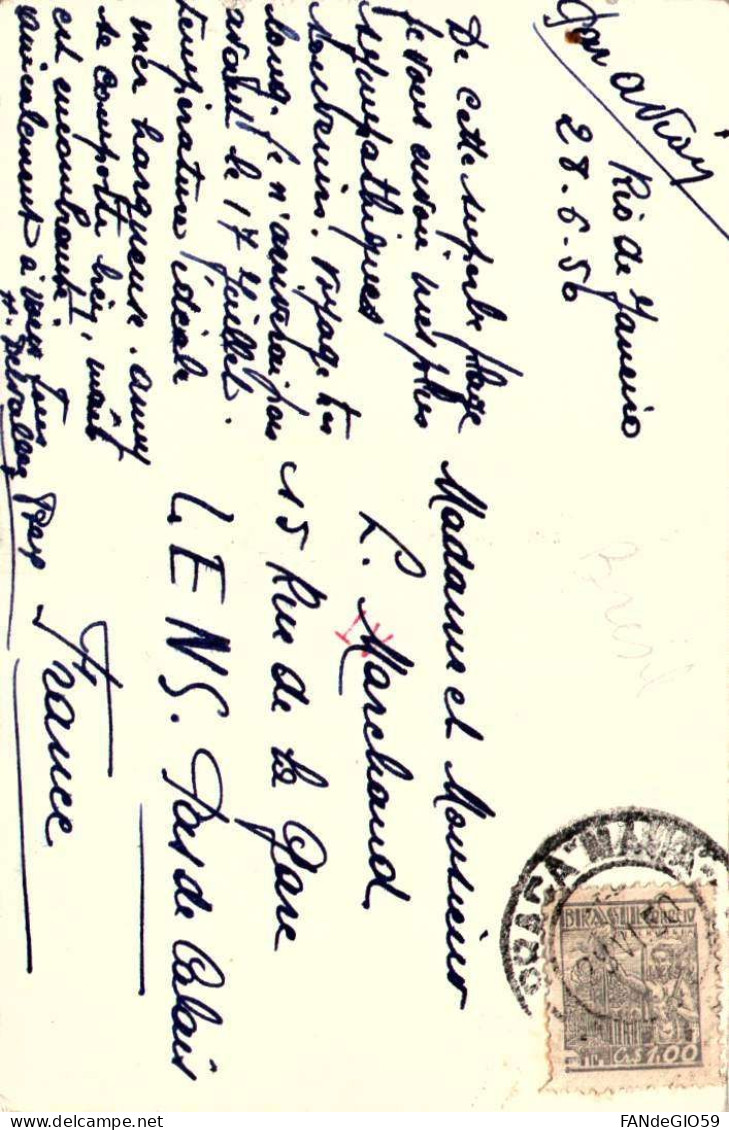 Par avion
Rio de Janeiro
28.6.50
De cette superbe plage
je vous envoi mes plus
sympathiques
souvenirs. Voyage très
long. Je n'arriverai pas
avant le 17 Juillet.
température idéale
mer langueuse. Anny
se comporte bien, mais
est encombrante.
amicalement à vous tous
Madame et Monsieur
L. Marchand
15 Rue de la Gare
LENS. Pas de Calais
France
Brésil
BRASIL CORREIO
Cr$ 1,00
FANdeGIO59